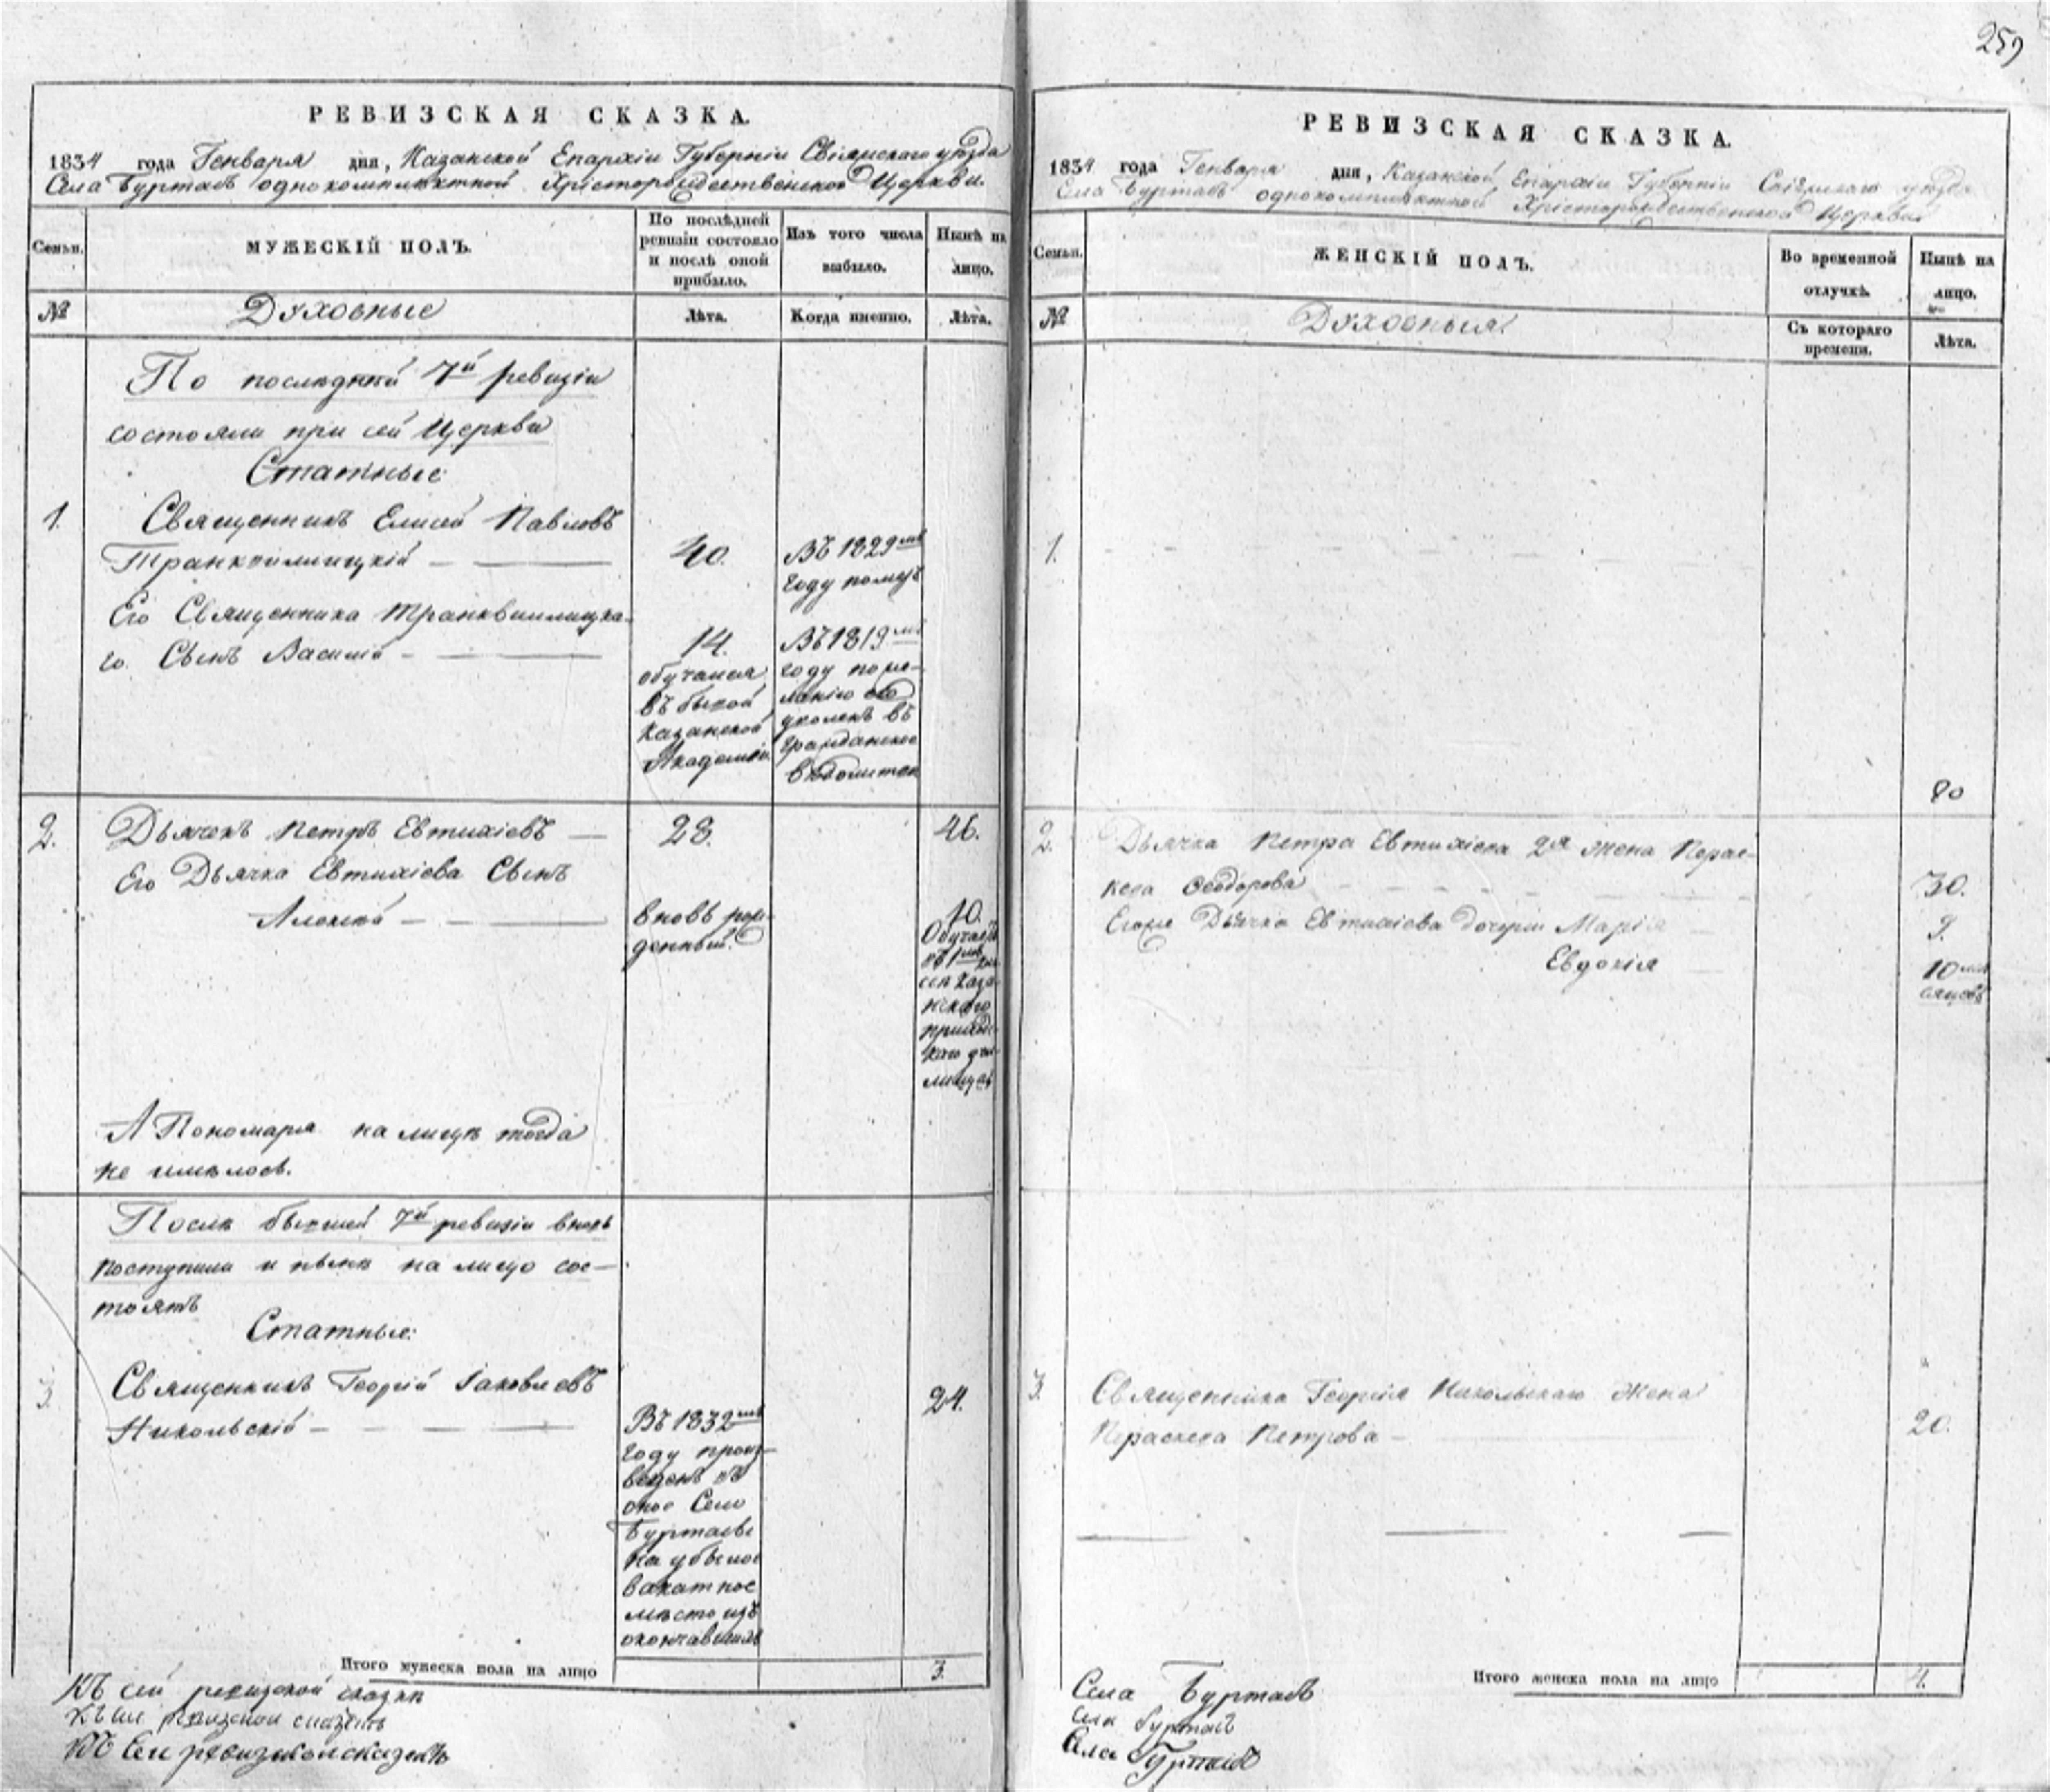 259
РЕВИЗСКАЯ СКАЗКА.
1834 года Генваря дня, Казанской Епархіи Губерніи Свіяжскаго уѣзда
Села Буртасъ однокомплектной Христорождественской Церкви.
Семьи.
МУЖЕСКІЙ ПОЛЪ.
По послѣдней
ревизіи состояло
и послѣ оной
прибыло.
Изъ того числа
выбыло.
Нынѣ на
лицо.
№
Духовные
Лѣта.
Когда именно.
Лѣта.
По последней 7й ревизіи
состояли при сей Церкви
Статные
1.
Священникъ Елисей Павловъ
Транквилицкій
40.
Въ 1829мъ
году померъ
Его Священника Транквиллицка-
го Сынъ Василій
14.
обучался
въ бывшей
Казанской
Академіи
Въ 1819мъ
году по же-
ланію его
уволенъ въ
Гражданское
вѣдомство
2.
Дьячекъ Петръ Евтихіевъ
28.
46.
Его Дьячка Евтихіева Сынъ
Алексей
вновь рож-
денный.
10.
Обучается
въ 1мъ клас-
сѣ Каза-
нскаго
приходс-
каго учи-
лища
А Пономаря на лицѣ тогда
не имѣлось.
Послѣ бывшей 7й ревизіи вновь
поступили и нынѣ на лицо сос-
тоятъ
Статные:
3.
Священникъ Георгій Іаковлевъ
Никольскій
24.
Въ 1832мъ
году произ-
веденъ въ
оное Село
Буртасы
на убылое
вакатное
мѣсто изъ
окончавшихъ
Итого мужеска пола на лицо
3.
Къ сей ревизской сказкѣ
Къ сей ревизской сказкѣ
Къ сей ревизской сказкѣ
РЕВИЗСКАЯ СКАЗКА.
1834 года Генваря дня, Казанской Епархіи Губерніи Свіяжскаго уѣзда
Села Буртасъ однокомплектной Христорождественской Церкви
Семьи.
ЖЕНСКІЙ ПОЛЪ.
Во временной
отлучкѣ.
Нынѣ на
лицо.
№
Духовныя.
Съ котораго
времени.
Лѣта.
1.
2.
Дьячка Петра Евтихіева 2я жена Перас-
кева Ѳеодорова
30.
Егоже Дьячка Евтихіева дочери Марія
9.
Евдокія
10 мѣ-
сяцовъ
3.
Священника Георгія Никольскаго Жена
Пераскева Петрова
20.
Итого женска пола на лицо
4.
Села Буртасъ
Села Буртасъ
Села Буртасъ